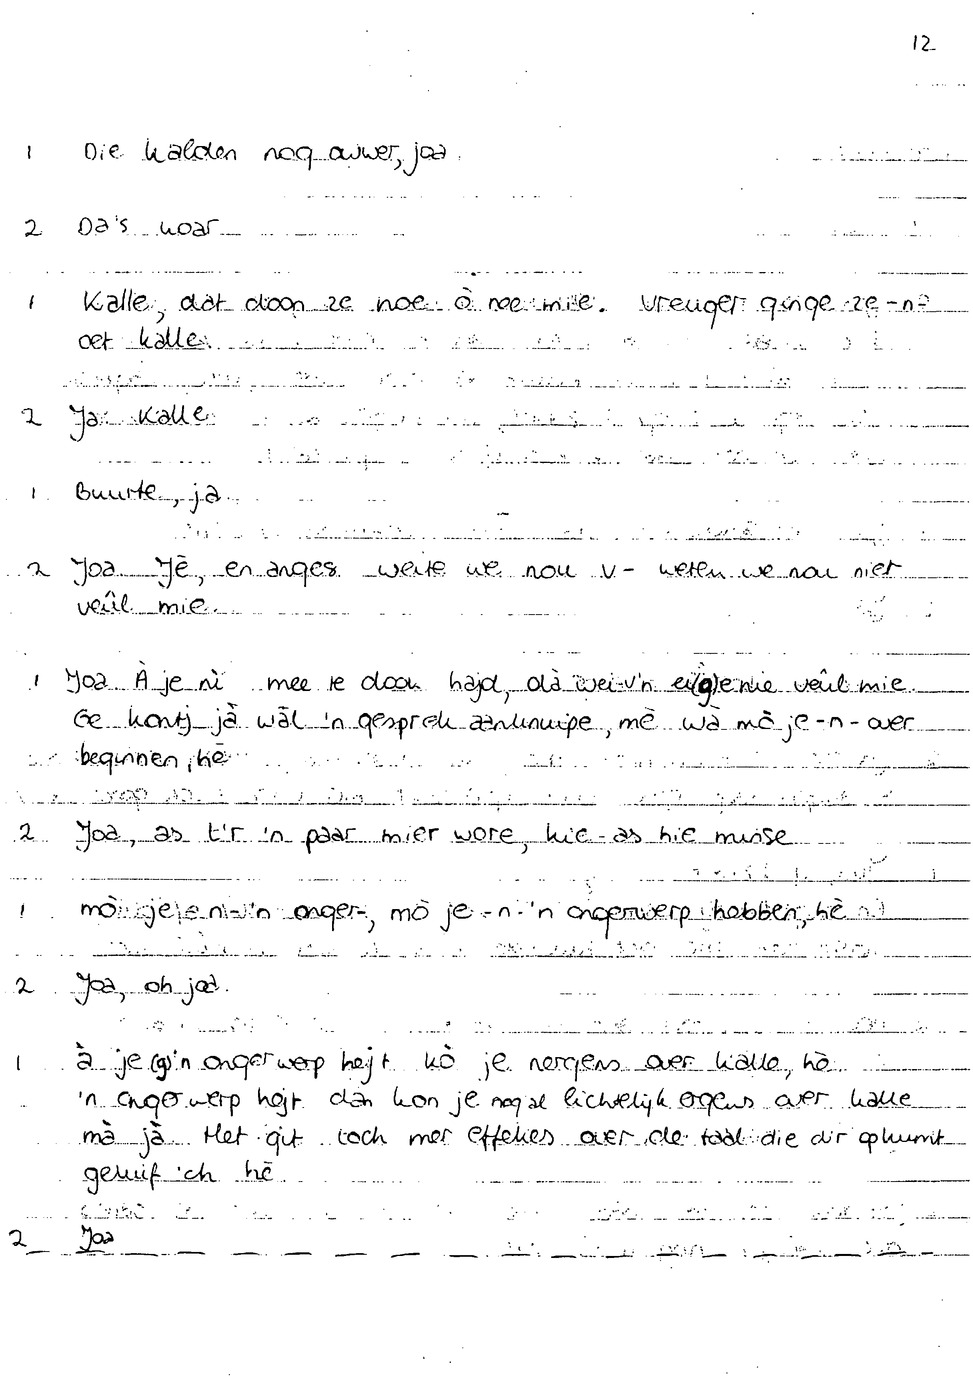 12
1 Die kalden nog auwer, joa.
2 Da's woar
1 Kalle, dat doon ze noe ò nee mie. Vreuger ginge ze-n-
oet kalle.
2 Ja kalle
1. Buurte, ja.
2 Joa. Jē, en anges weite we nou v- weten we nou niet
veûl mie.
1 Joa. À je nì mee te doon hajd, dà wei-v'n ei(g)e nie veûl mie.
Ge kontj jà wàl 'n gesprek aanknuipe, mè wà mò je-n-over
beginnen, hè
2 Joa, as t'r 'n paar mier wore, hie-as hie minse
1 mò je 'n onger-, mò je-n-'n ongerwerp hebben, hè
2 Joa, oh joa.
1 à je (g)'n ongerwerp hejt kò je nergens over kalle, hà
'n ongerwerp hejt dan kon je nogal lichtelijk ergens over kalle
mà jà. Het git toch mer effekes over de taal die dir opkumt
geluif 'ch hè
2 Joa